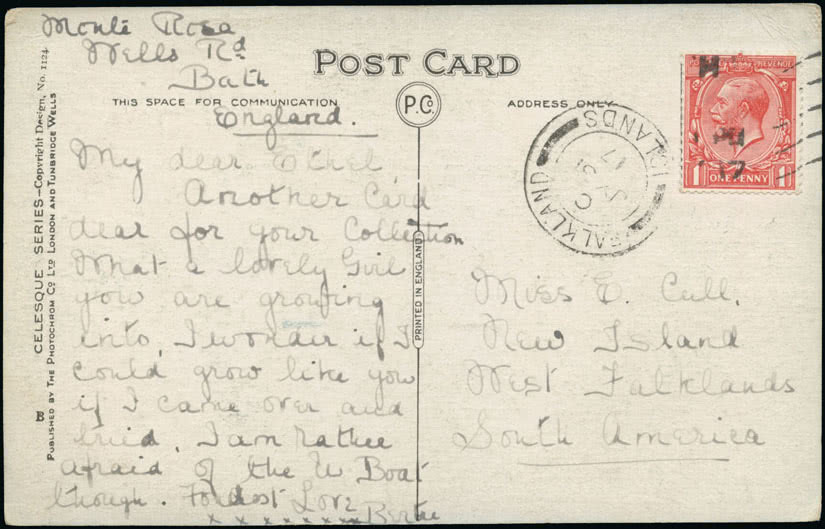 Monte Rosa
Wells Rd
Bath
England.
POST CARD
THIS SPACE FOR COMMUNICATION
P.Co.
ADDRESS ONLY
My dear Ethel
Another Card
dear for your Collection
What a lovely Girl
you are growing
into, I wonder if I
could grow like you
if I came over and
tried, I am rather
afraid of the U Boat
though. Fondest Love
Bertie
x x x x x x x x
Miss E. Cull,
New Island
West Falklands
South America
FALKLAND ISLANDS
C
31
17
POSTAGE REVENUE
1 ONE PENNY 1
PRINTED IN ENGLAND
CELESQUE SERIES—Copyright Design, No. 1124.
PUBLISHED BY THE PHOTOCHROM CO LTD LONDON AND TUNBRIDGE WELLS
B